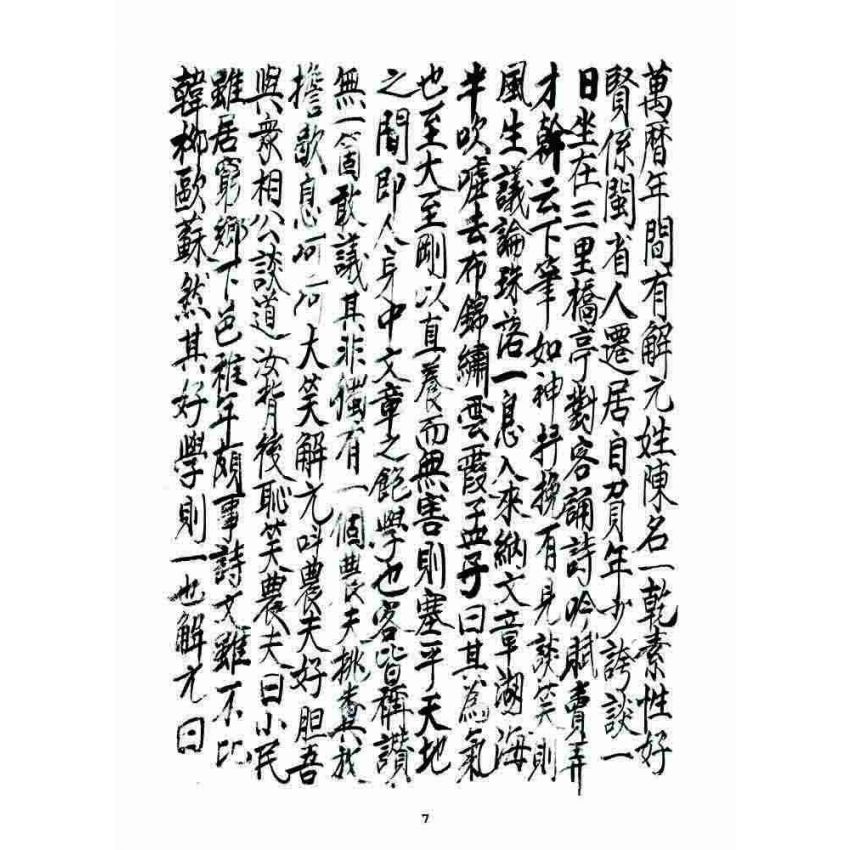 萬曆年間有解元姓陳名一乾素性好
賢係閩省人遷居自負年少誇談一
日坐在三里橋亭對客誦詩吟賦賣弄
才幹云下筆如神抒挽有見談笑則
風生議論珠落一息入來納文章湖海
半吹噓去布錦繡雲霞孟子曰其為氣
也至大至剛以直養而無害則塞乎天地
之間即人身中文章之飽學也客皆稱讚
無一箇敢議其非獨有一個農夫挑糞放
擔歇息呵呵大笑解元叫農夫好胆吾
與衆相公談道汝背後恥笑農夫曰小民
雖居窮鄉下邑稚年頗事詩文雖不比
韓柳歐蘇然其好學則一也解元曰
7